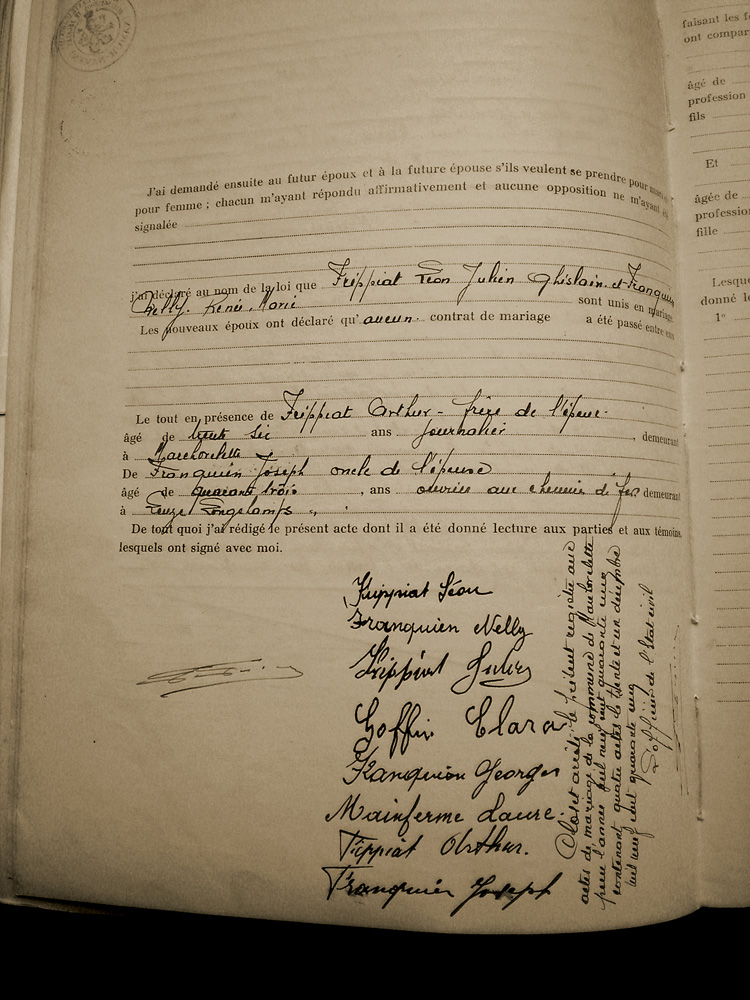 J'ai demandé ensuite au futur époux et à la future épouse s'ils veulent se prendre pour
pour femme ; chacun m'ayant répondu affirmativement et aucune opposition ne m'ayant
signalée
j'ai déclaré au nom de la loi que Frippiat Léon Julien Ghislain et Franquien
Nelly Renée Marie sont unis en mariage.
Les nouveaux époux ont déclaré qu'aucun contrat de mariage a été passé entre eux
Le tout en présence de Frippiat Arthur - frère de l'époux
âgé de trente six ans journalier , demeurant
à
De Franquien Joseph oncle de l'épouse
âgé de quarante trois , ans ouvrier aux chemins de fer demeurant
à Leuze Longchamps
De tout quoi j'ai rédigé le présent acte dont il a été donné lecture aux parties et aux témoins,
lesquels ont signé avec moi.
Frippiat Léon
Franquien Nelly
Frippiat Jules
Goffin Clara
Franquien Georges
Mainferme Laure
Frippiat Arthur.
Franquien Joseph
Clos et arrêté le présent registre aux
actes de mariage de la commune de
pour l'année mil neuf cent quarante cinq
contenant quatre actes le trente et un décembre
mil neuf cent quarante cinq
L'officier de l'Etat civil
faisant les f
ont compar
âgé de
profession
fils
Et
âgée de
profession
fille
Lesque
donné le
1°